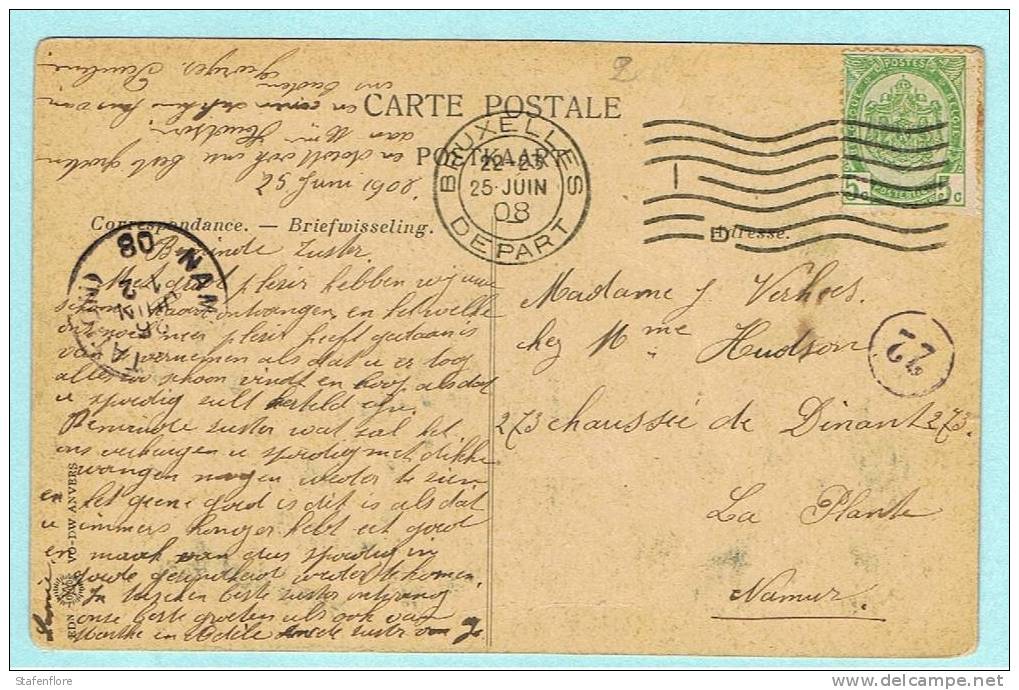 2
CARTE POSTALE
POSTKAART
Correspondance. — Briefwisseling.
Adresse.
BRUXELLES
22-23
25 JUIN
08
DEPART
POSTES
5 c
c
25 Juni 1908.
en ook onze beste groeten
aan Mme Hudson
Georges, Pauline
NAM
08
Beminde zuster.
Met groot plezier hebben wij uw
schoone kaart ontvangen, en hetwelke
ons nog meer plezier heeft gedaan is
van te vernemen als dat u er toog
alles zoo schoon vindt en hoop als dat
u spoedig zult hersteld zijn.
Beminde zuster wat zal het
ons verheugen u spoedig met dikke
wangen mogen weder te zien
en het geene goed is dit is als dat
u immers honger hebt eet goed
en maak van dus spoedig in
goede gezondheid weder te komen.
In tusschen beste zuster ontvang
onze beste groeten als ook van
Marthe en Adèle
Madame J Verhees.
chez Mme Hudson
273 chaussée de Dinant 273.
La Plante
Namur.
22
EDN
VO-DW ANVERS
Stafenflore
www.delcampe.net